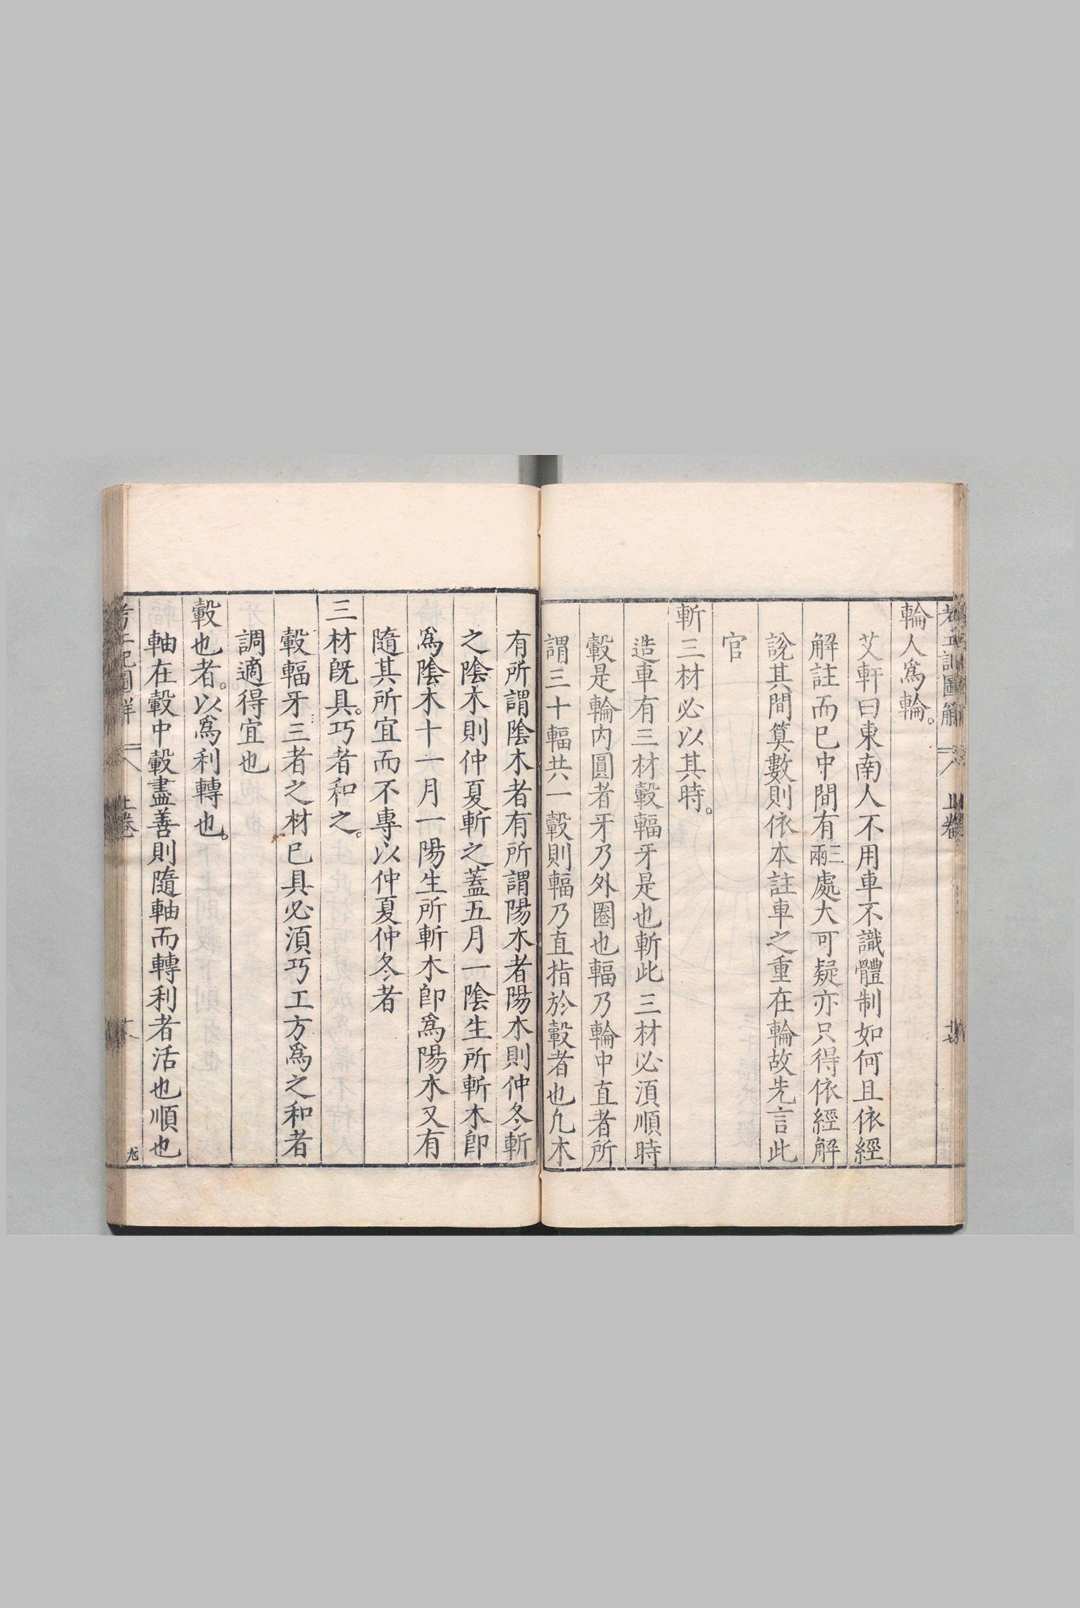 輪人爲輪。
艾軒曰東南人不用車不識體制如何且依經
解註而已中間有兩三處大可疑亦只得依經解
說其間算數則依本註車之重在輪故先言此
官
斬三材必以其時。
造車有三材轂輻牙是也斬此三材必湏順時
轂是輪内圓者牙乃外圈也輻乃輪中直者所
謂三十輻共一轂則輻乃直指於轂者也凢木
有所謂陰木者有所謂陽木者陽木則仲冬斬
之陰木則仲夏斬之蓋五月一陰生所斬木卽
爲陰木十一月一陽生所斬木卽爲陽木又有
隨其所宜而不專以仲夏仲冬者
三材旣具。巧者和之。
轂輻牙三者之材已具必湏巧工方爲之和者
調適得宜也
轂也者。以爲利轉也。
軸在轂中轂盡善則隨軸而轉利者活也順也
上卷